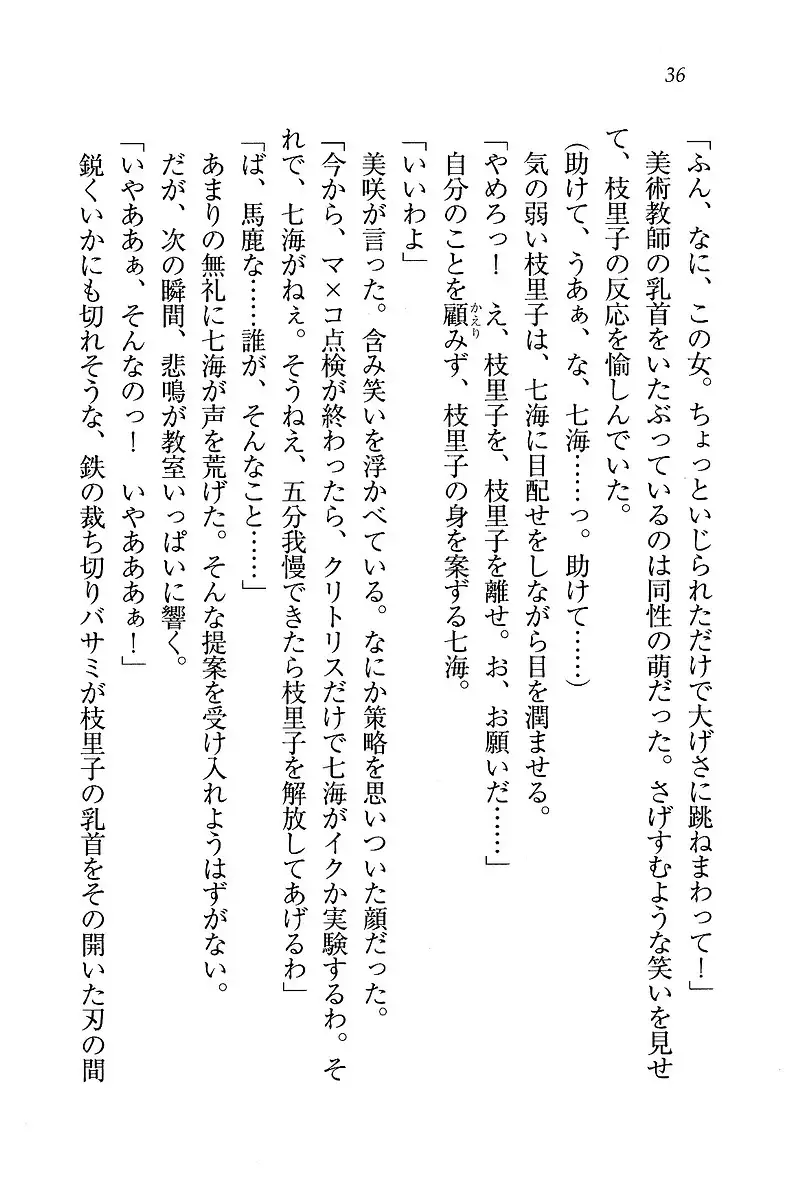 36
「ふん、なに、この女。ちょっといじられただけで大げさに跳ねまわって！」
美術教師の乳首をいたぶっているのは同性の萌だった。さげすむような笑いを見せ
て、枝里子の反応を愉しんでいた。
(助けて、うあぁ、な、七海……っ。助けて……)
気の弱い枝里子は、七海に目配せをしながら目を潤ませる。
「やめろっ！　え、枝里子を、枝里子を離せ。お、お願いだ……」
自分のことを顧かえりみず、枝里子の身を案ずる七海。
「いいわよ」
美咲が言った。含み笑いを浮かべている。なにか策略を思いついた顔だった。
「今から、マ×コ点検が終わったら、クリトリスだけで七海がイクか実験するわ。そ
れで、七海がねぇ。そうねえ、五分我慢できたら枝里子を解放してあげるわ」
「ば、馬鹿な……誰が、そんなこと……」
あまりの無礼に七海が声を荒げた。そんな提案を受け入れようはずがない。
だが、次の瞬間、悲鳴が教室いっぱいに響く。
「いやああぁ、そんなのっ！　いやあああぁ！」
鋭くいかにも切れそうな、鉄の裁ち切りバサミが枝里子の乳首をその開いた刃の間